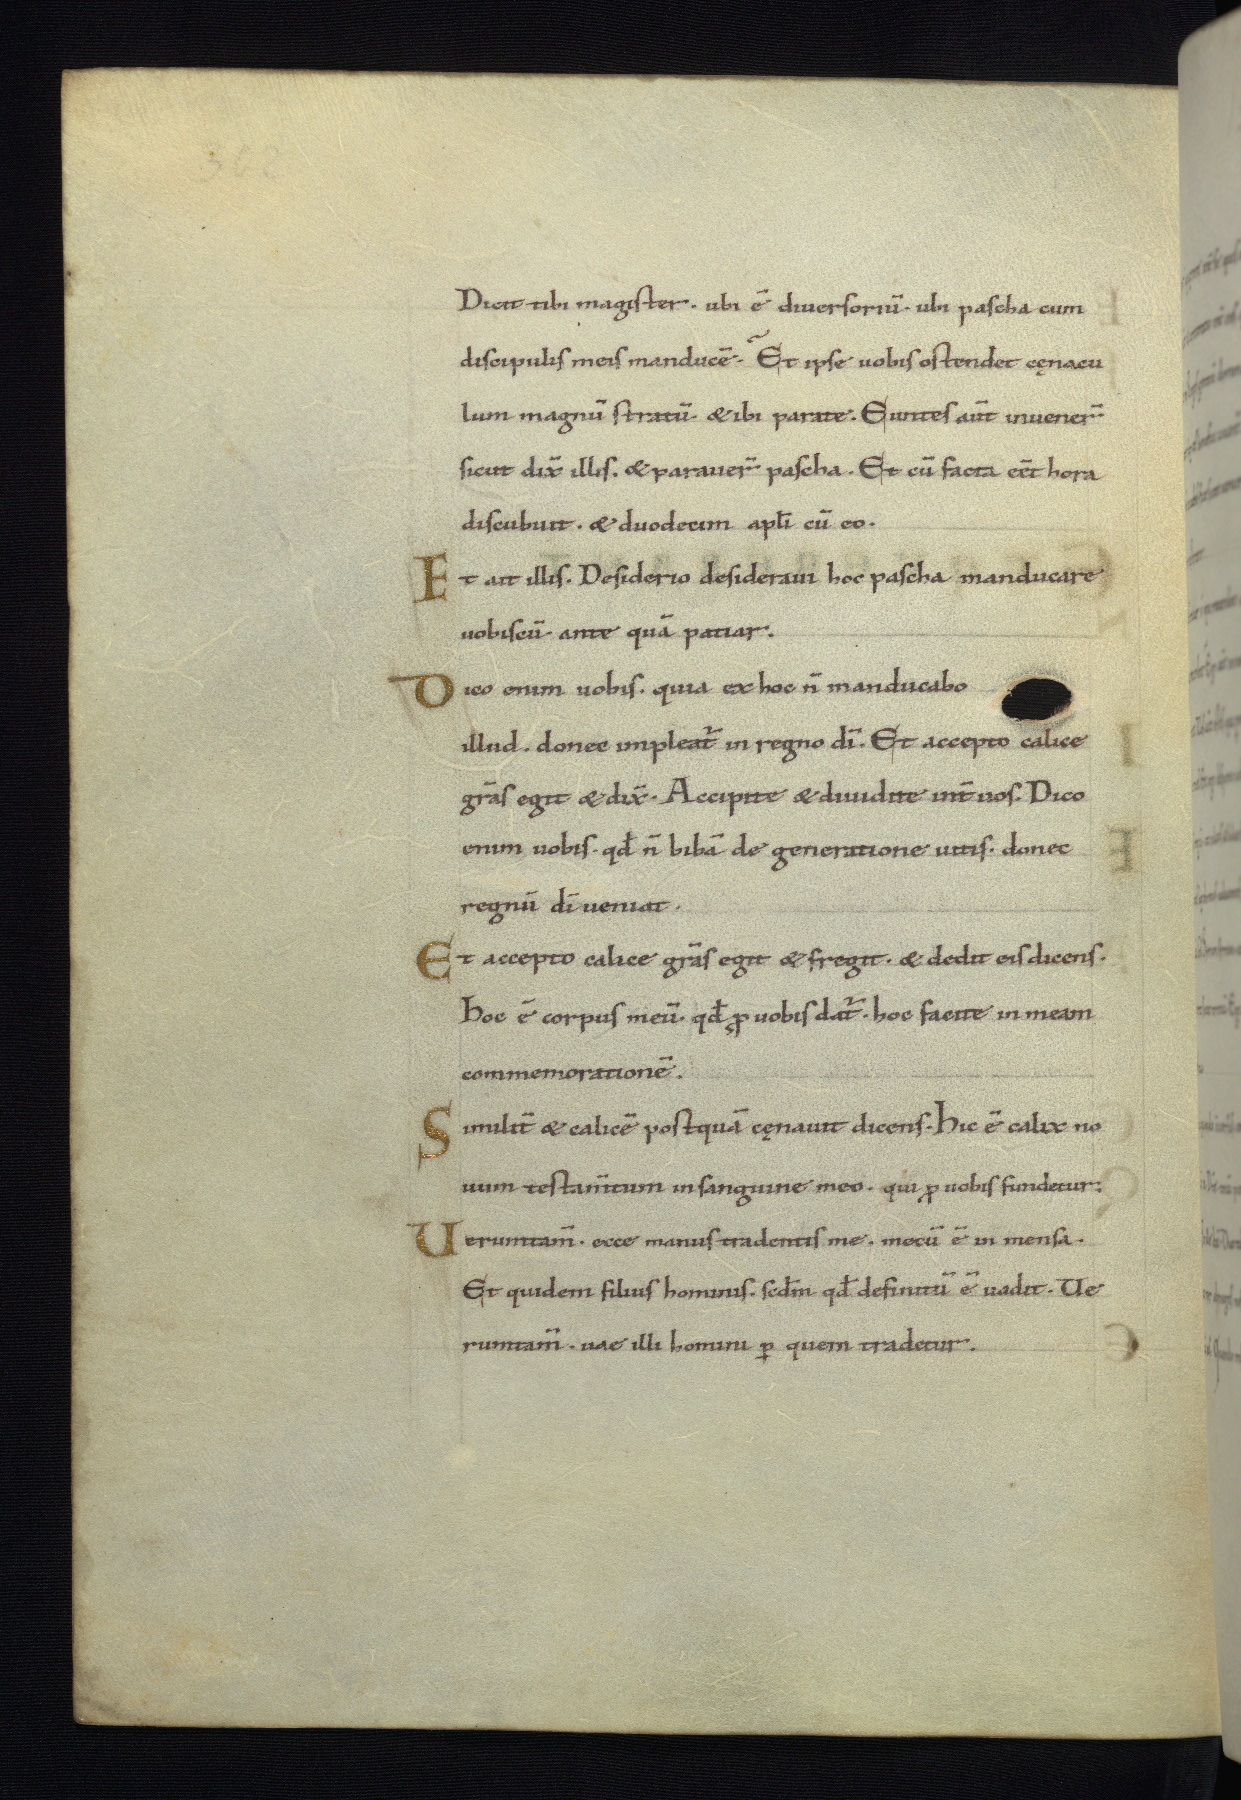 Dicit tibi magister· ubi ē diuersoriū· ubi pascha cum
discipulis meis manducē· Et ipse uobis ostendet cęnacu
lum magnū stratū· & ibi parate· Euntes aūt inuener̄
sicut dix̄ illis· & parauer̄ pascha· Et cū facta eēt hora
discubuit· & duodecim apl̄i cū eo·
Et ait illis· Desiderio desideraui hoc pascha manducare
uobiscū· ante quā patiar·
Dico enim uobis· quia ex hoc n̄ manducabo
illud· donec impleat̄ in regno dī· Et accepto calice
grās egit & dix̄· Accipite & diuidite int̄ uos· Dico
enim uobis· qđ n̄ bibā de generatione uitis· donec
regnū dī ueniat·
Et accepto calice grās egit & fregit· & dedit eis dicens·
hoc ē corpus meū· qđ ꝓ uobis dat̄· hoc facite in meam
commemorationē·
Similit̄ & calicē postquā cęnauit dicens· hic ē calix no
uum testam̄tum in sanguine meo· qui ꝓ uobis fundetur·
Ueruntam̄· ecce manus tradentis me· mecū ē in mensa·
Et quidem filius hominis· scd̄m qđ definitū ē uadit· Ue
runtam̄· uae illi homini ꝑ quem tradetur·